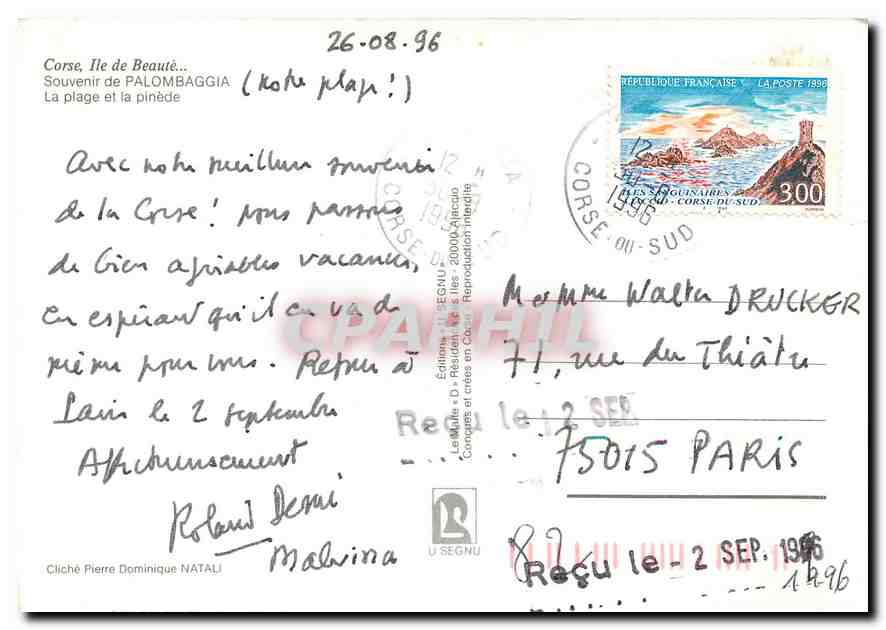 26-08-96
Corse, Ile de Beauté...
Souvenir de PALOMBAGGIA (notre plage!)
La plage et la pinède
Avec notre meilleur souvenir
de la Corse! nous passons
de bien agréables vacances,
en espérant qu'il en va de
même pour vous. Retour à
Paris le 2 septembre
Affectueusement
Roland Denni
Malvina
Cliché Pierre Dominique NATALI
U SEGNU
Éditions « U SEGNU »
Le Malte « D » Résidence des Iles - 20000 Ajaccio
Conçues et créées en Corse - Reproduction interdite
RÉPUBLIQUE FRANÇAISE
LA POSTE 1996
ILES SANGUINAIRES
AJACCIO - CORSE-DU-SUD
3,00
12
1996
CORSE-DU-SUD
12
CORSE-DU
M et Mme Walter DRUCKER
71, rue du Théâtre
75015 PARIS
Reçu le 2 SEP.
Reçu le - 2 SEP. 1996
1996
CPARHIL